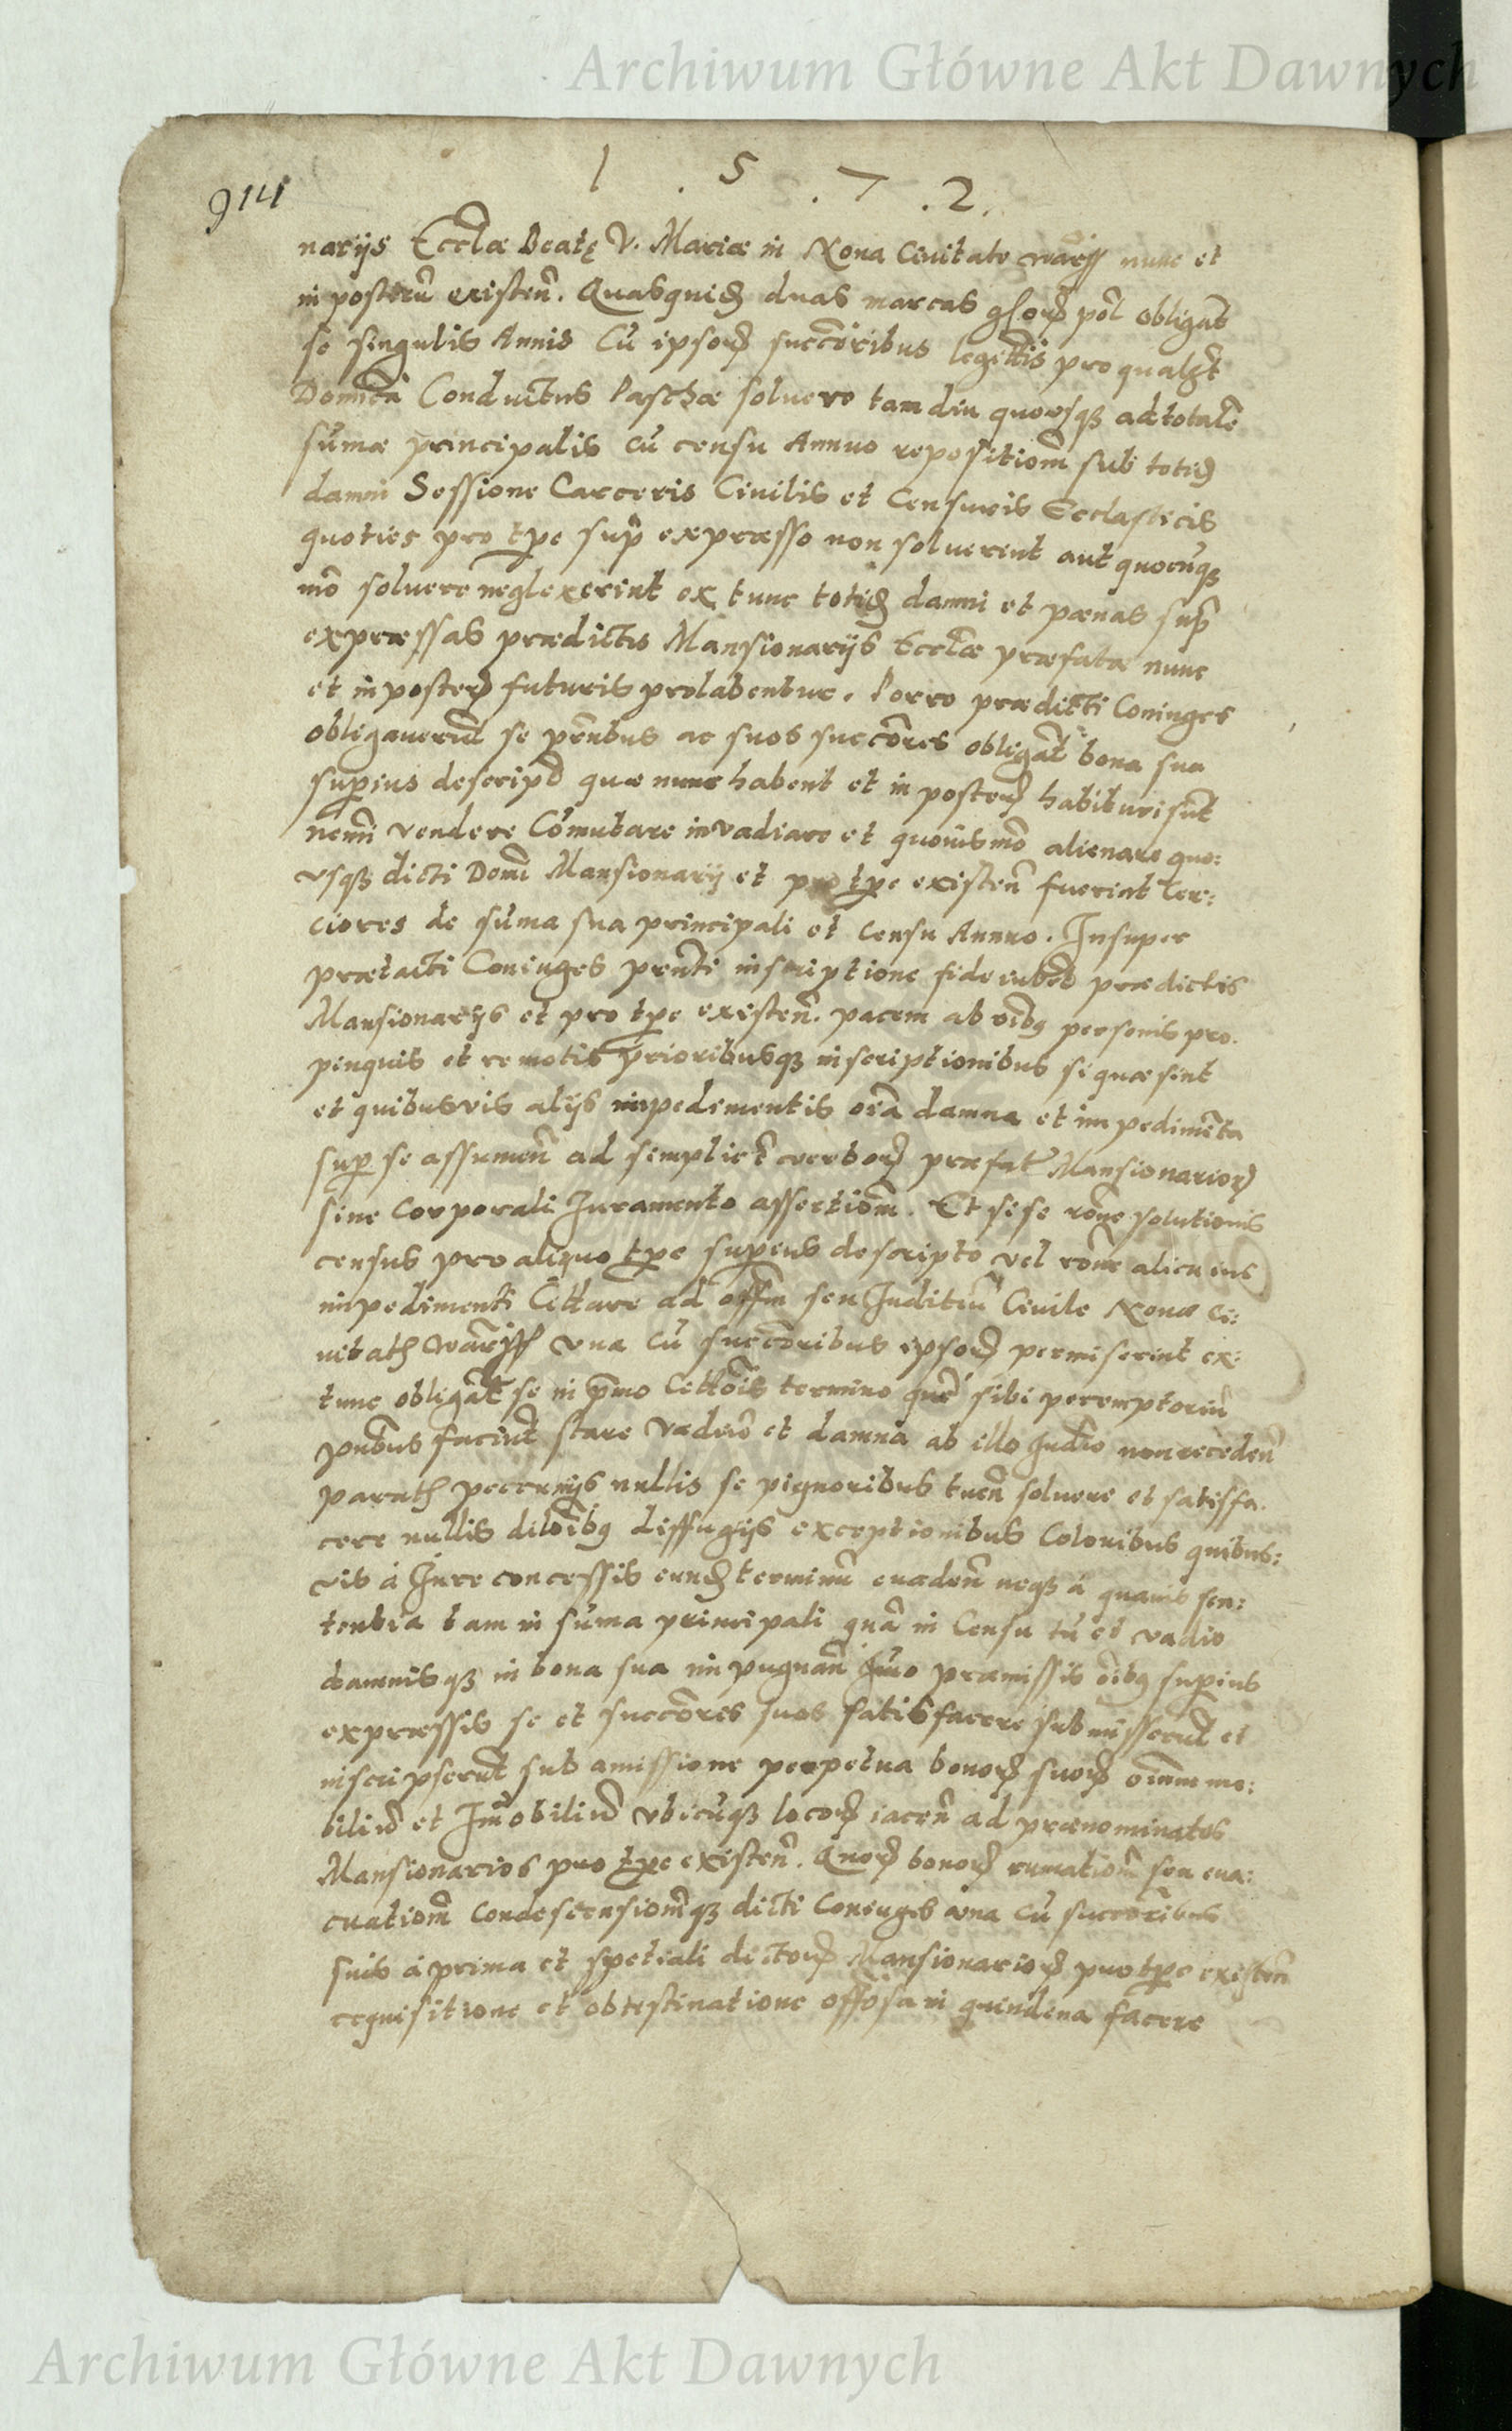 Archiwum Główne Akt Dawnych
1 . 5 . 7 . 2 .
914
narijs Eccla̅e Beatę V. Mariæ in Noua Ciuitate nunc et
in posteru̅ existen̅. Quasquid̅ duas marcas obliga̅t
se singulis Annis Cu̅ ipsor̅ succ̅oribus legit̅is pro qual̅t
Domi̅ca Conductus Paschæ soluere tam diu quousq̅ ad totale̅
su̅mæ principalis cu̅ censu Annuo repositiom̅ sub totid̅
damni Sessione Carceris Ciuilis et Censuris Ecclasticis
quoties pro t̅pe sup̅ expræsso non soluerint aut quocu̅q̅
mo̅ soluere neglexerint ex tunc totid̅ damni et pænas sup̅
expræssas prædictis Mansionarijs Eccl̅æ præfatæ nunc
et in poster̅ futuris prolabentur. Porro prædicti Coniuges
obligaueru̅t se pn̅tibus ac suos succ̅ores obliga̅t bona sua
sup̅ius descript̅ quæ nunc habent et in poster̅ habituri su̅nt
nemi̅ vendere Co̅mutare inuadiare et quouismo̅ alienare quo:
vsq̅ dicti Domi̅ Mansionarij et pro t̅pe existen̅ fuerint Cer:
ciores de su̅ma sua principali et Censu Annuo. Insuper
prætacti Coniuges præn̅ti inscriptione fideiube̅t prædictis
Mansionarijs et pro t̅pe existen̅. pacem ab o̅ibq personis pro.
pinquis et remotis prioribusq̅ inscriptionibus si quæ sint
et quibusvis alijs impedimentis oi̅a damna et impedime̅ta
sup̅ se assumen̅ ad simplice̅ verbor̅ præfat̅ Mansionarior̅
sine Corporali Iuramento assertiom̅. Et si se ro̅ne solutionis
census pro aliquo t̅pe sup̅ius descripto vel ro̅ne alicuius
impedimenti Cittare ad off̅m seu Juditiu̅ Ciuile Nouæ Ci:
uitatis vna cu̅ succ̅oribus ipsor̅ permiserint ex:
tunc obliga̅t se in p̅mo Citto̅is termino que̅ sibi peremptoriu̅
pn̅tibus faciu̅t stare vadiu̅ et damna ab illo Iudi̅o non receden̅
paratis peccunijs nullis se pignoribus tuen̅ soluere et satisffa.
cere nullis dilo̅ibq diffugijs exceptionibus Coloribus quibus:
vis á Iure concessis eund̅ terminu̅ euaden̅ neq̅ á quauis sen:
tentia tam in su̅ma principali qua̅ in Censu tu̅ et vadio
damnisq̅ in bona sua impugnan̅ Imo præmissis o̅ibq sup̅ius
expræssis se et succ̅ores suos satisfacere submisseru̅t et
inscripseru̅t sub amissione perpetua bonor̅ suor̅ oi̅um mo:
biliu̅ et Im̅obiliu̅ vbicu̅q̅ locor̅ iacen̅ ad prænominatos
Mansionarios pro t̅pe existen̅. Quor̅ bonor̅ rumatiom̅ seu eua:
cuatiom̅ condescensiom̅q̅ dicti Coniuges vna cu̅ succ̅oribus
suis á prima et spetiali dictor̅ Mansionarior̅ pro t̅pe existen̅
requisitione et obtestinatione offo̅sa in quindena facere
Archiwum Główne Akt Dawnych